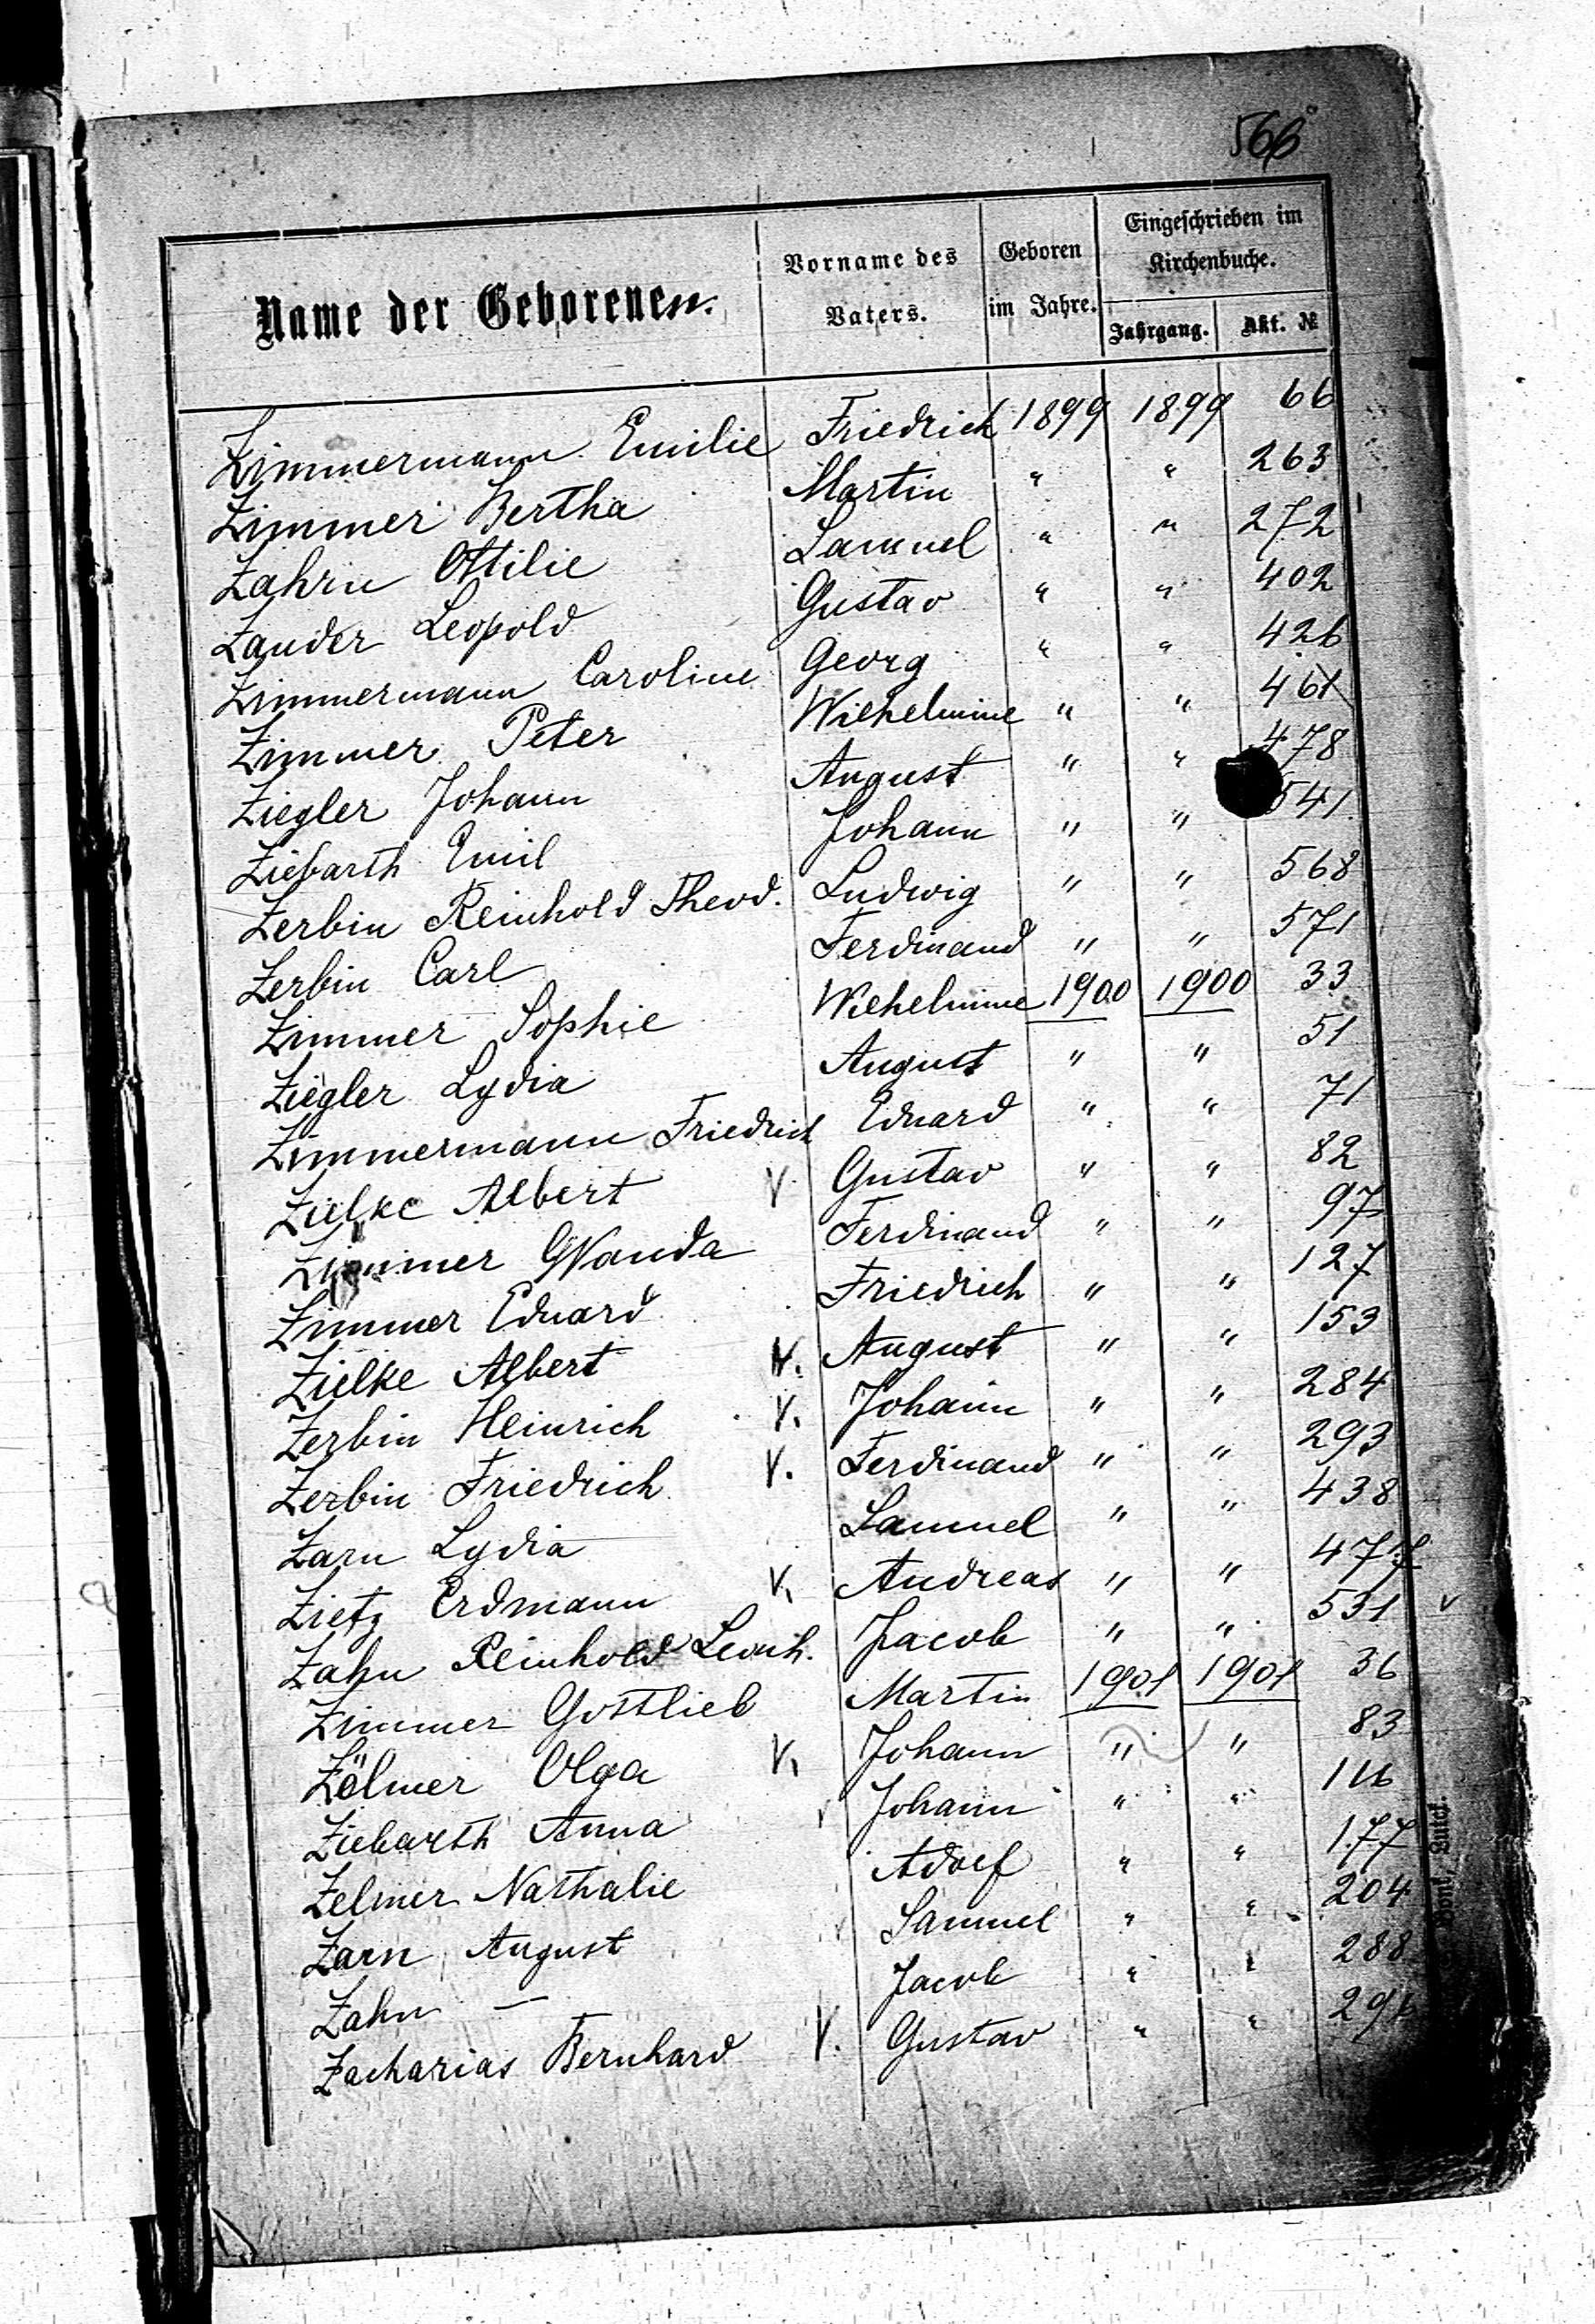 566
Name der Geborenen.
Vorname des Vaters.
Geboren im Jahre.
Eingeschrieben im Kirchenbuche.
Jahrgang.
Akt. №
Zimmermann Emilie Friedrich 1899 1899 66
Zimmer Bertha Martin " " 263
Zahrn Ottilie Samuel " " 272
Zander Leopold Gustav " " 402
Zimmermann Caroline Georg " " 426
Zimmer Peter Wilhelmine " " 461
Ziegler Johann August " " 478
Ziebarth Emil Johann " " 541
Zerbin Reinhold Theod. Ludwig " " 568
Zerbin Carl Ferdinand " " 571
Zimmer Sophie Wilhelmine 1900 1900 33
Ziegler Lydia August " " 51
Zimmermann Friedrich Eduard " " 71
Zielke Albert V Gustav " " 82
Zimmer Wanda Ferdinand " " 97
Zimmer Eduard Friedrich " " 127
Zielke Albert V. August " " 153
Zerbin Heinrich V. Johann " " 284
Zerbin Friedrich V. Ferdinand " " 293
Zarn Lydia Samuel " " 438
Zietz Erdmann V. Andreas " " 477
Zahn Reinhold Leonh. Jacob " " 531 v
Zimmer Gottlieb Martin 1901 1901 36
Zölmer Olga V. Johann " " 83
Ziebarth Anna Johann " " 116
Zelmer Nathalie Adolf " " 177
Zarn August Samuel " " 204
Zahn — Jacob " " 288
Zacharias Bernhard V. Gustav " "